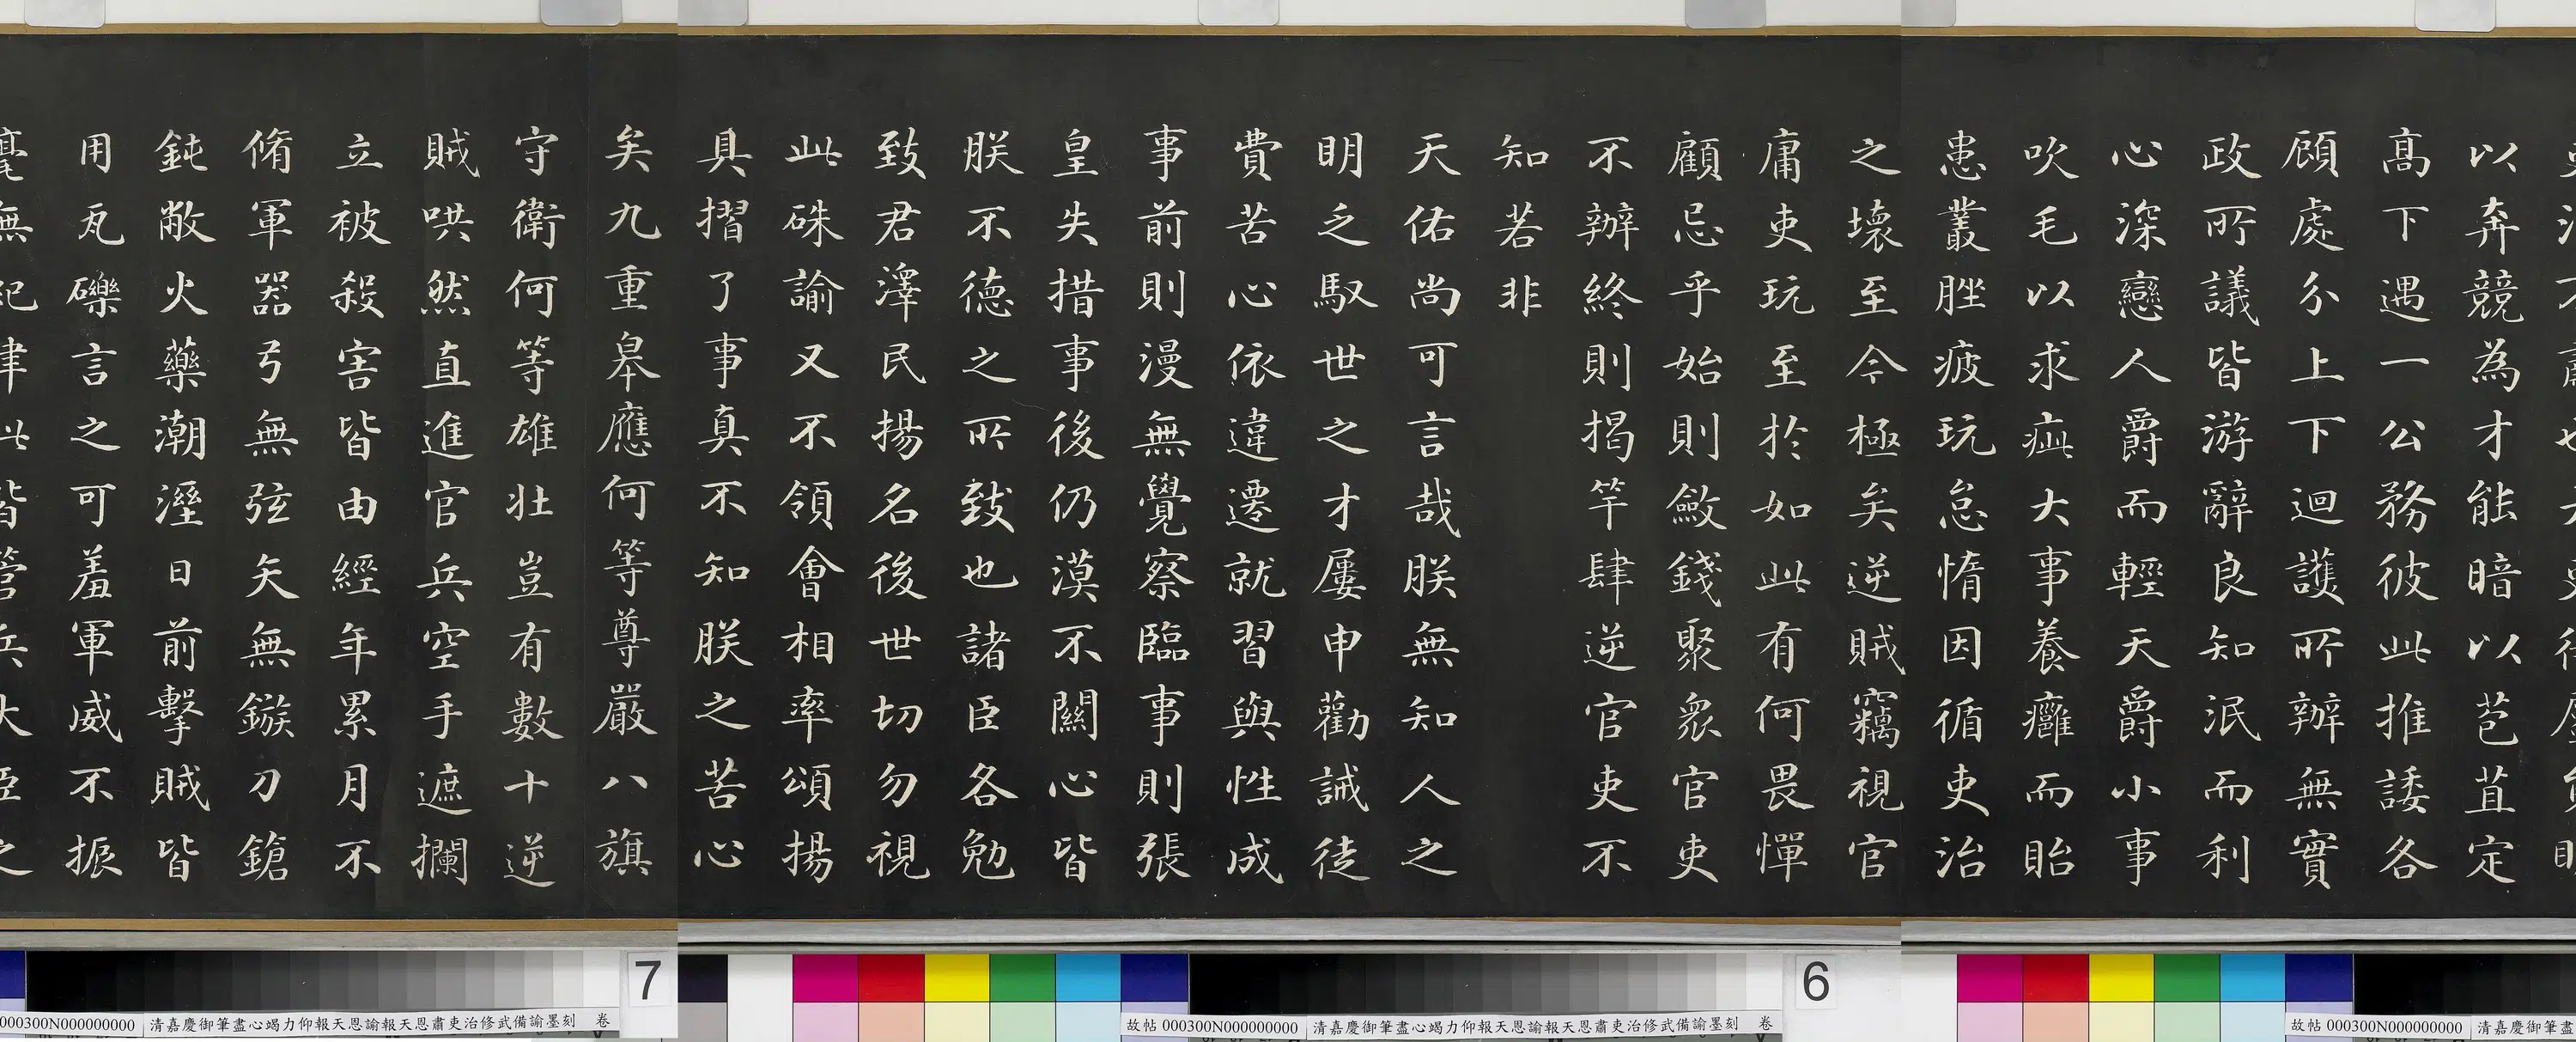 以奔競為才能暗以苞苴定
高下遇一公務彼此推諉各
顧處分上下迴護所辦無實
政所議皆游辭良知泯而利
心深戀人爵而輕天爵小事
吹毛以求疵大事養癰而貽
患叢脞疲玩怠惰因循吏治
之壞至今極矣逆賊竊視官
庸吏玩至於如此有何畏憚
顧忌乎始則斂錢聚衆官吏
不辦終則揭竿肆逆官吏不
知若非
天佑尚可言哉朕無知人之
明乏馭世之才屢申勸誡徒
費苦心依違遷就習與性成
事前則漫無覺察臨事則張
皇失措事後仍漠不關心皆
朕不德之所致也諸臣各勉
致君澤民揚名後世切勿視
此硃諭又不領會相率頌揚
具摺了事真不知朕之苦心
矣九重皋應何等尊嚴八旗
守衛何等雄壯豈有數十逆
賊哄然直進官兵空手遮攔
立被殺害皆由經年累月不
脩軍器弓無弦矢無鏃刀鎗
鈍敝火藥潮溼日前擊賊皆
用瓦礫言之可羞軍威不振
毫無紀律此皆管兵大臣之
7
6
000300N000000000 清嘉慶御筆盡心竭力仰報天恩諭報天恩肅吏治修武備諭墨刻 卷
故帖 000300N000000000 清嘉慶御筆盡心竭力仰報天恩諭報天恩肅吏治修武備諭墨刻 卷
故帖 000300N000000000 清嘉慶御筆盡